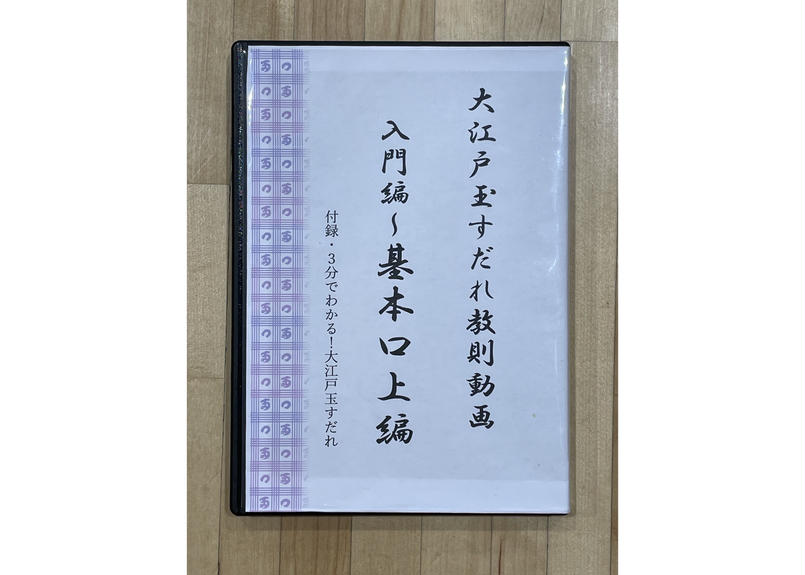 大江戸玉すだれ教則動画
入門編～基本口上編
付録・３分でわかる！大江戸玉すだれ